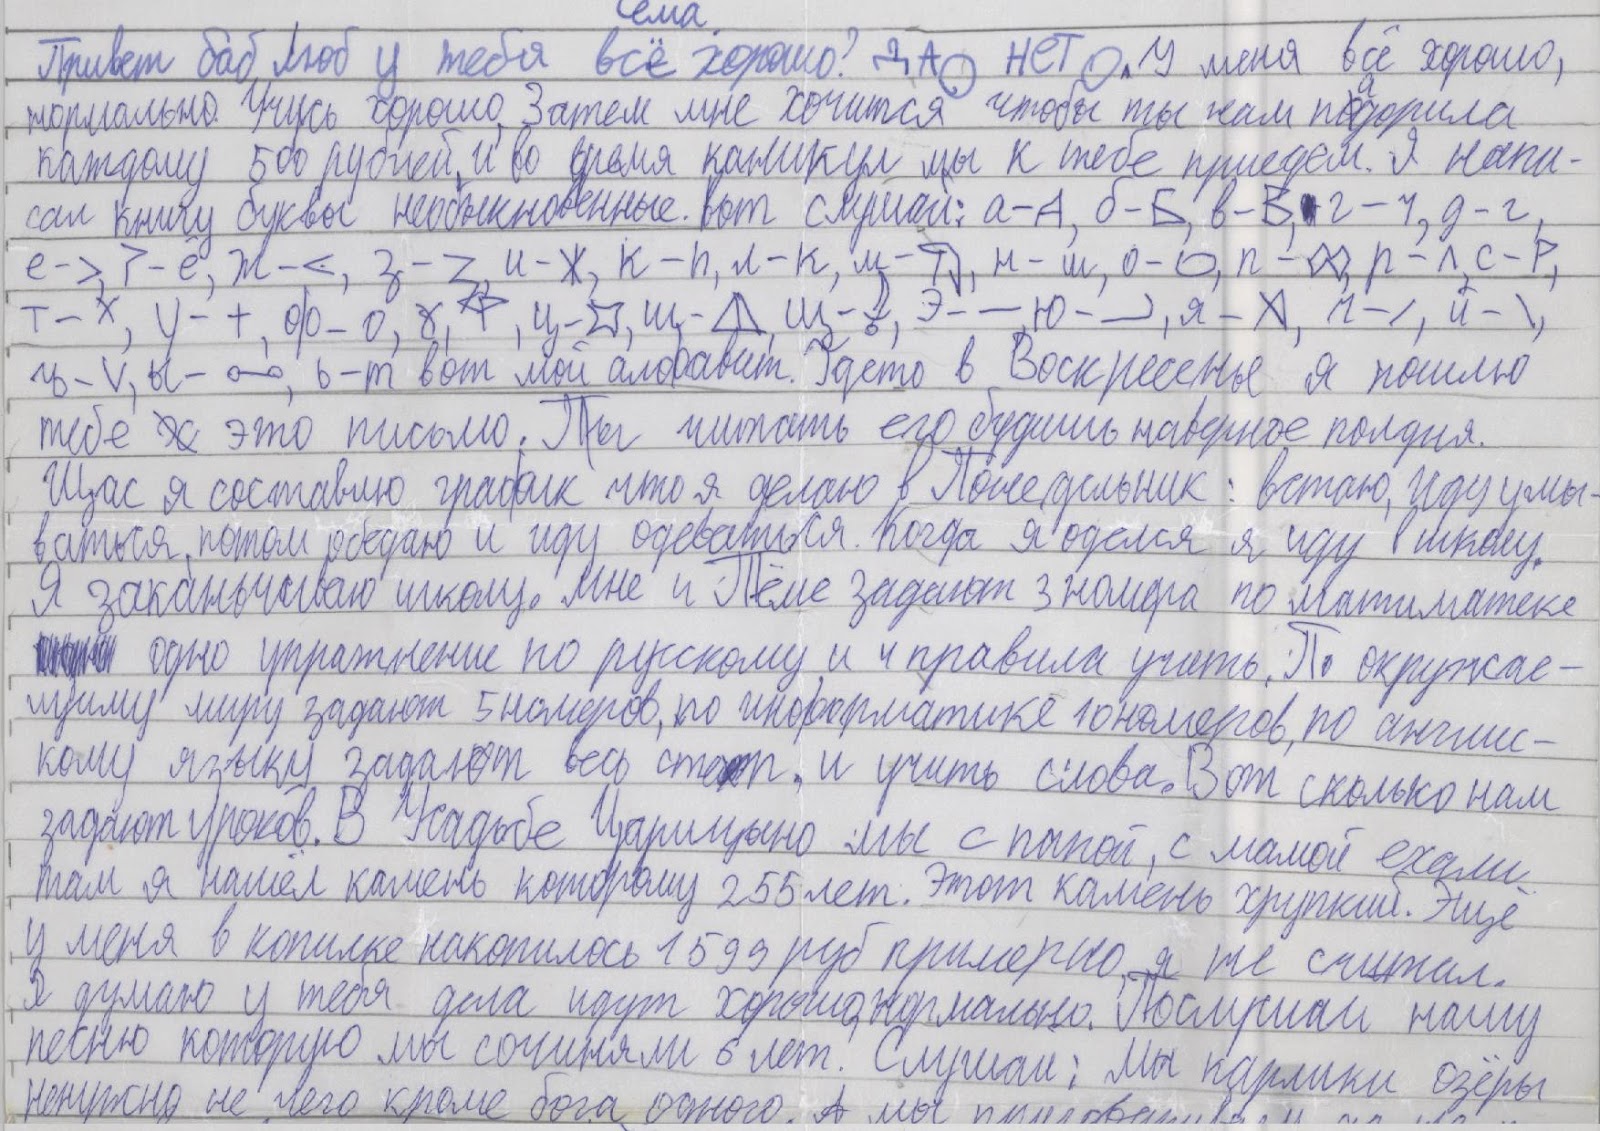 Тема
Привет баб Люб у тебя всё хорошо? ДА○ НЕТ○. У меня всё хорошо,
нормально. Учусь хорошо. Затем мне хочится чтобы ты нам подарила
каждому 500 рублей, и во время каникул мы к тебе приедем. Я напи-
сал книгу буквы необыкновенные. Вот слушай: а-А, б-Б, в-В, г-ч, д-г,
е->, Ё-ё, ж-<, з-Z, и-ж, к-п, л-к, м-, н-ш, о-○, п-, р-л, с-Р,
т-х, у-+, ф-о, х, ц-, ш-, щ-, э-—, ю-, я-, ч-/, й-\,
ъ-V, ы-о-о, ь-т вот мой алфавит. Гдето в Воскресенье я пошлю
тебе это письмо. Ты читать его будишь наверное полдня.
Щас я составлю график что я делаю в Понедельник: встаю, иду умы-
ваться, потом обедаю и иду одеваться. Когда я оделся я иду в школу.
Я заканьчиваю школу. Мне и Тёме задают 3 номера по матиматеке
одно упражнение по русскому, и 4 правила учить. По окружае-
мщиму миру задают 5 номеров, по информатике 10 номеров, по англис-
кому языку задают весь и учить слова. Вот сколько нам
задают уроков. В Усадьбе Царицыно мы с папой, с мамой ехали
там я нашёл камень которому 255 лет. Этот камень хрупкий. Эщё
у меня в копилке накопилось 1599 руб примерно, я же считал.
Я думаю у тебя дела идут хорошо, нормально. Послушай нашу
песню которую мы сочиняли 6 лет. Слушай: мы карлики озёры
ненужно не чего кроме бога одного. А мы